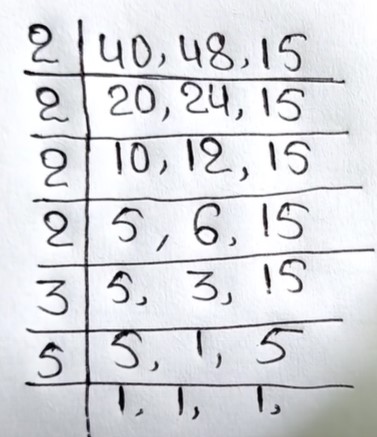 2 | 40, 48, 15
2 | 20, 24, 15
2 | 10, 12, 15
2 | 5, 6, 15
3 | 5, 3, 15
5 | 5, 1, 5
| 1, 1, 1,